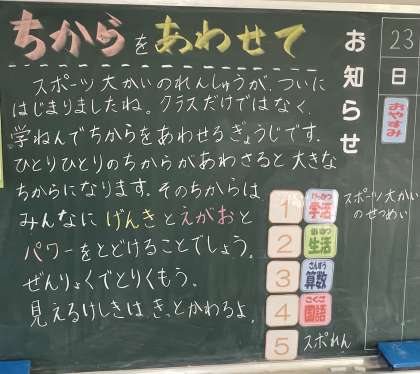 ちからをあわせて
スポーツ大かいのれんしゅうが、ついに
はじまりましたね。クラスだけではなく、
学ねんでちからをあわせるぎょうじです。
ひとりひとりのちからがあわさると大きな
ちからになります。そのちからは
みんなにげんきとえがおと
パワーをとどけることでしょう。
ぜんりょくでとりくもう。
見えるけしきは、きっとかわるよ。
お知らせ
1 がっかつ 学活 スポーツ大かいのせつめい
2 せいかつ 生活
3 さんすう 算数
4 こくご 国語
5 スポれん
23
日
おやすみ